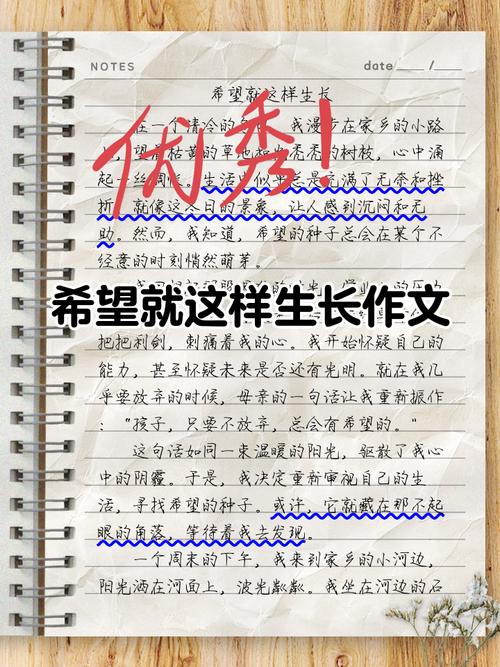 NOTES
date____ /____
希望就这样生长
在一个清冷的冬 我漫步在家乡的小路
望着枯黄的草地和光秃秃的树枝，心中涌
起一丝 生活 似乎总是充满了无奈和挫
折，就像这冬日的景象，让人感到沉闷和无
助。然而，我知道，希望的种子总会在某个不
经意的时刻悄然萌芽。
优秀！
希望就这样生长作文
把把利剑，刺痛着我的心。我开始怀疑自己的
能力，甚至怀疑未来是否还有光明。就在我几
乎要放弃的时候，母亲的一句话让我重新振作
：“孩子，只要不放弃，总会有希望的。”
这句话如同一束温暖的阳光，驱散了我心
中的阴霾。于是，我决定重新审视自己的生
活，寻找希望的种子。或许，它就藏在那不起
眼的角落，等待着我去发现。
一个周末的下午，我来到家乡的小河边，
阳光洒在河面上，波光粼粼。我坐在河边的石